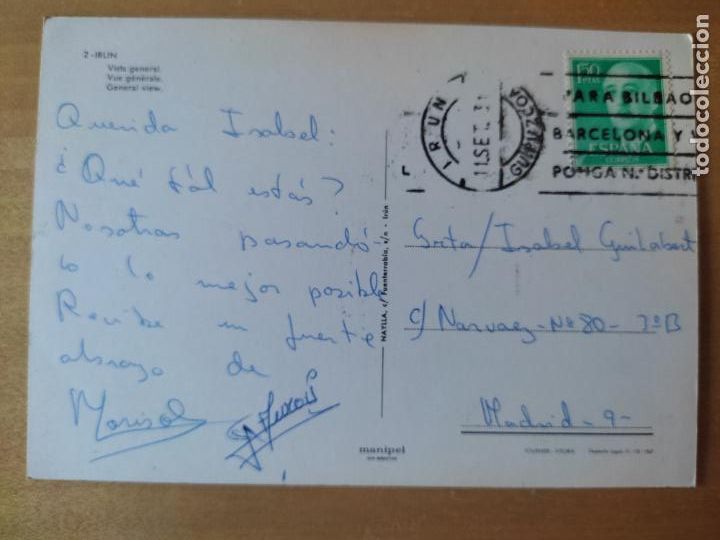 2-IRUN
Vista general.
Vue générale.
General view.
Querida Isabel:
¿Qué tál estás?
Nosotras pasando-
lo lo mejor posible
Recibe un fuerte
abrazo de
Marisol
MAYLLA, c/ Fuenterrabía, s/n - Irún
manipel
IRUN
GUIPUZCOA
11 SET.
PARA BILBAO
BARCELONA Y
PONGA N.º DISTR
50
PTAS
ESPAÑA
CORREOS
Srta/ Isabel Guilabert
c/ Narvaez-Nº 80- 7º B
Madrid-9-
todocoleccion.net